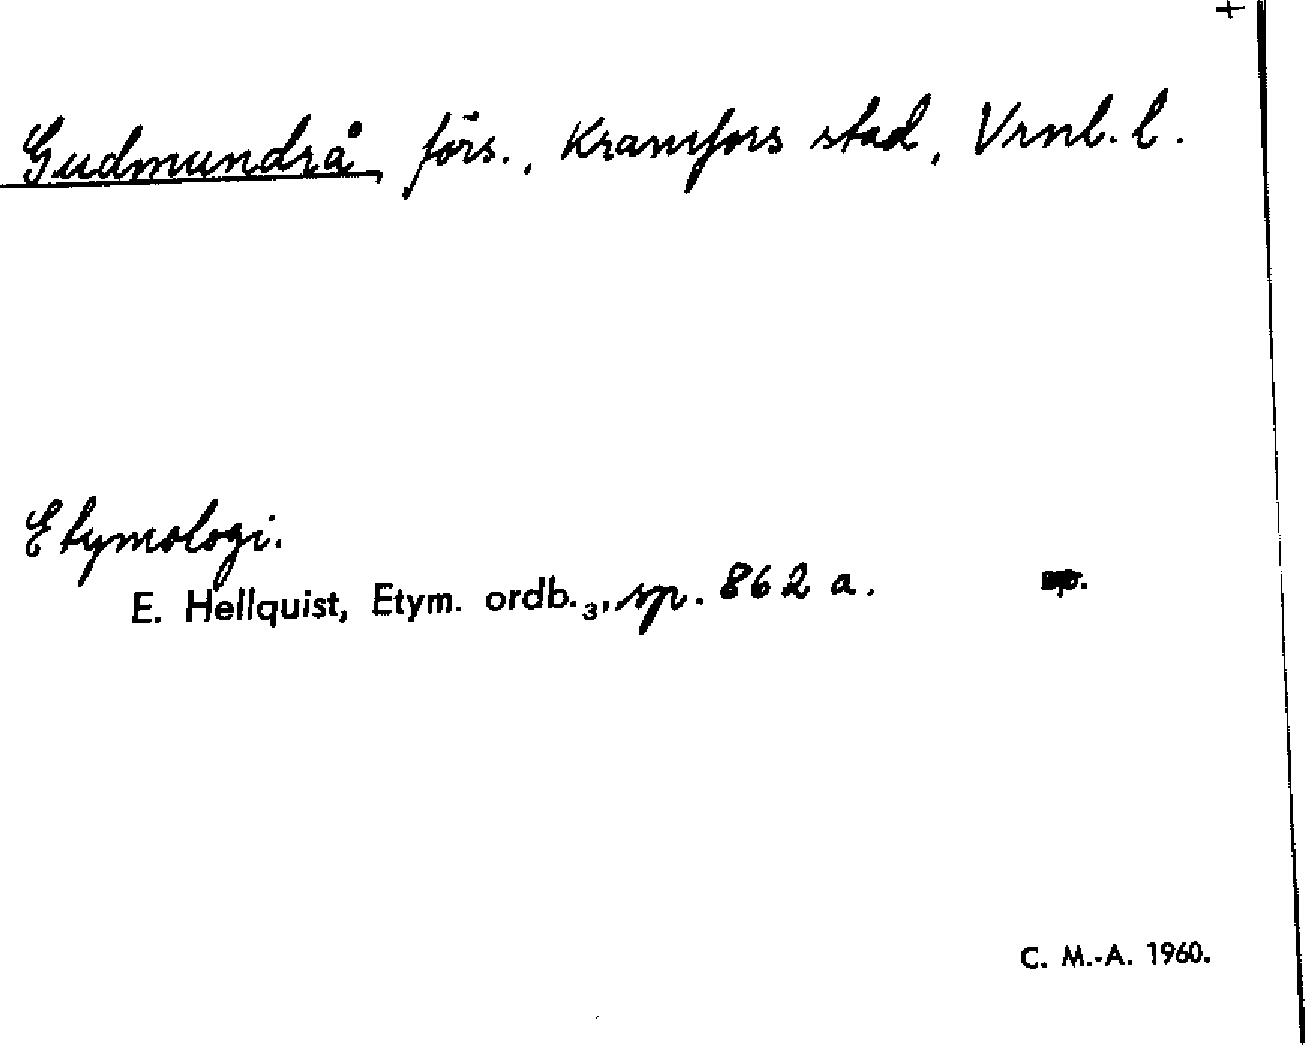 +
Gudmundrå, förs., Kramfors stad, Vrnl. l.
Etymologi.
E. Hellquist, Etym. ordb.₃, sp. 862 a.
C. M.-A. 1960.